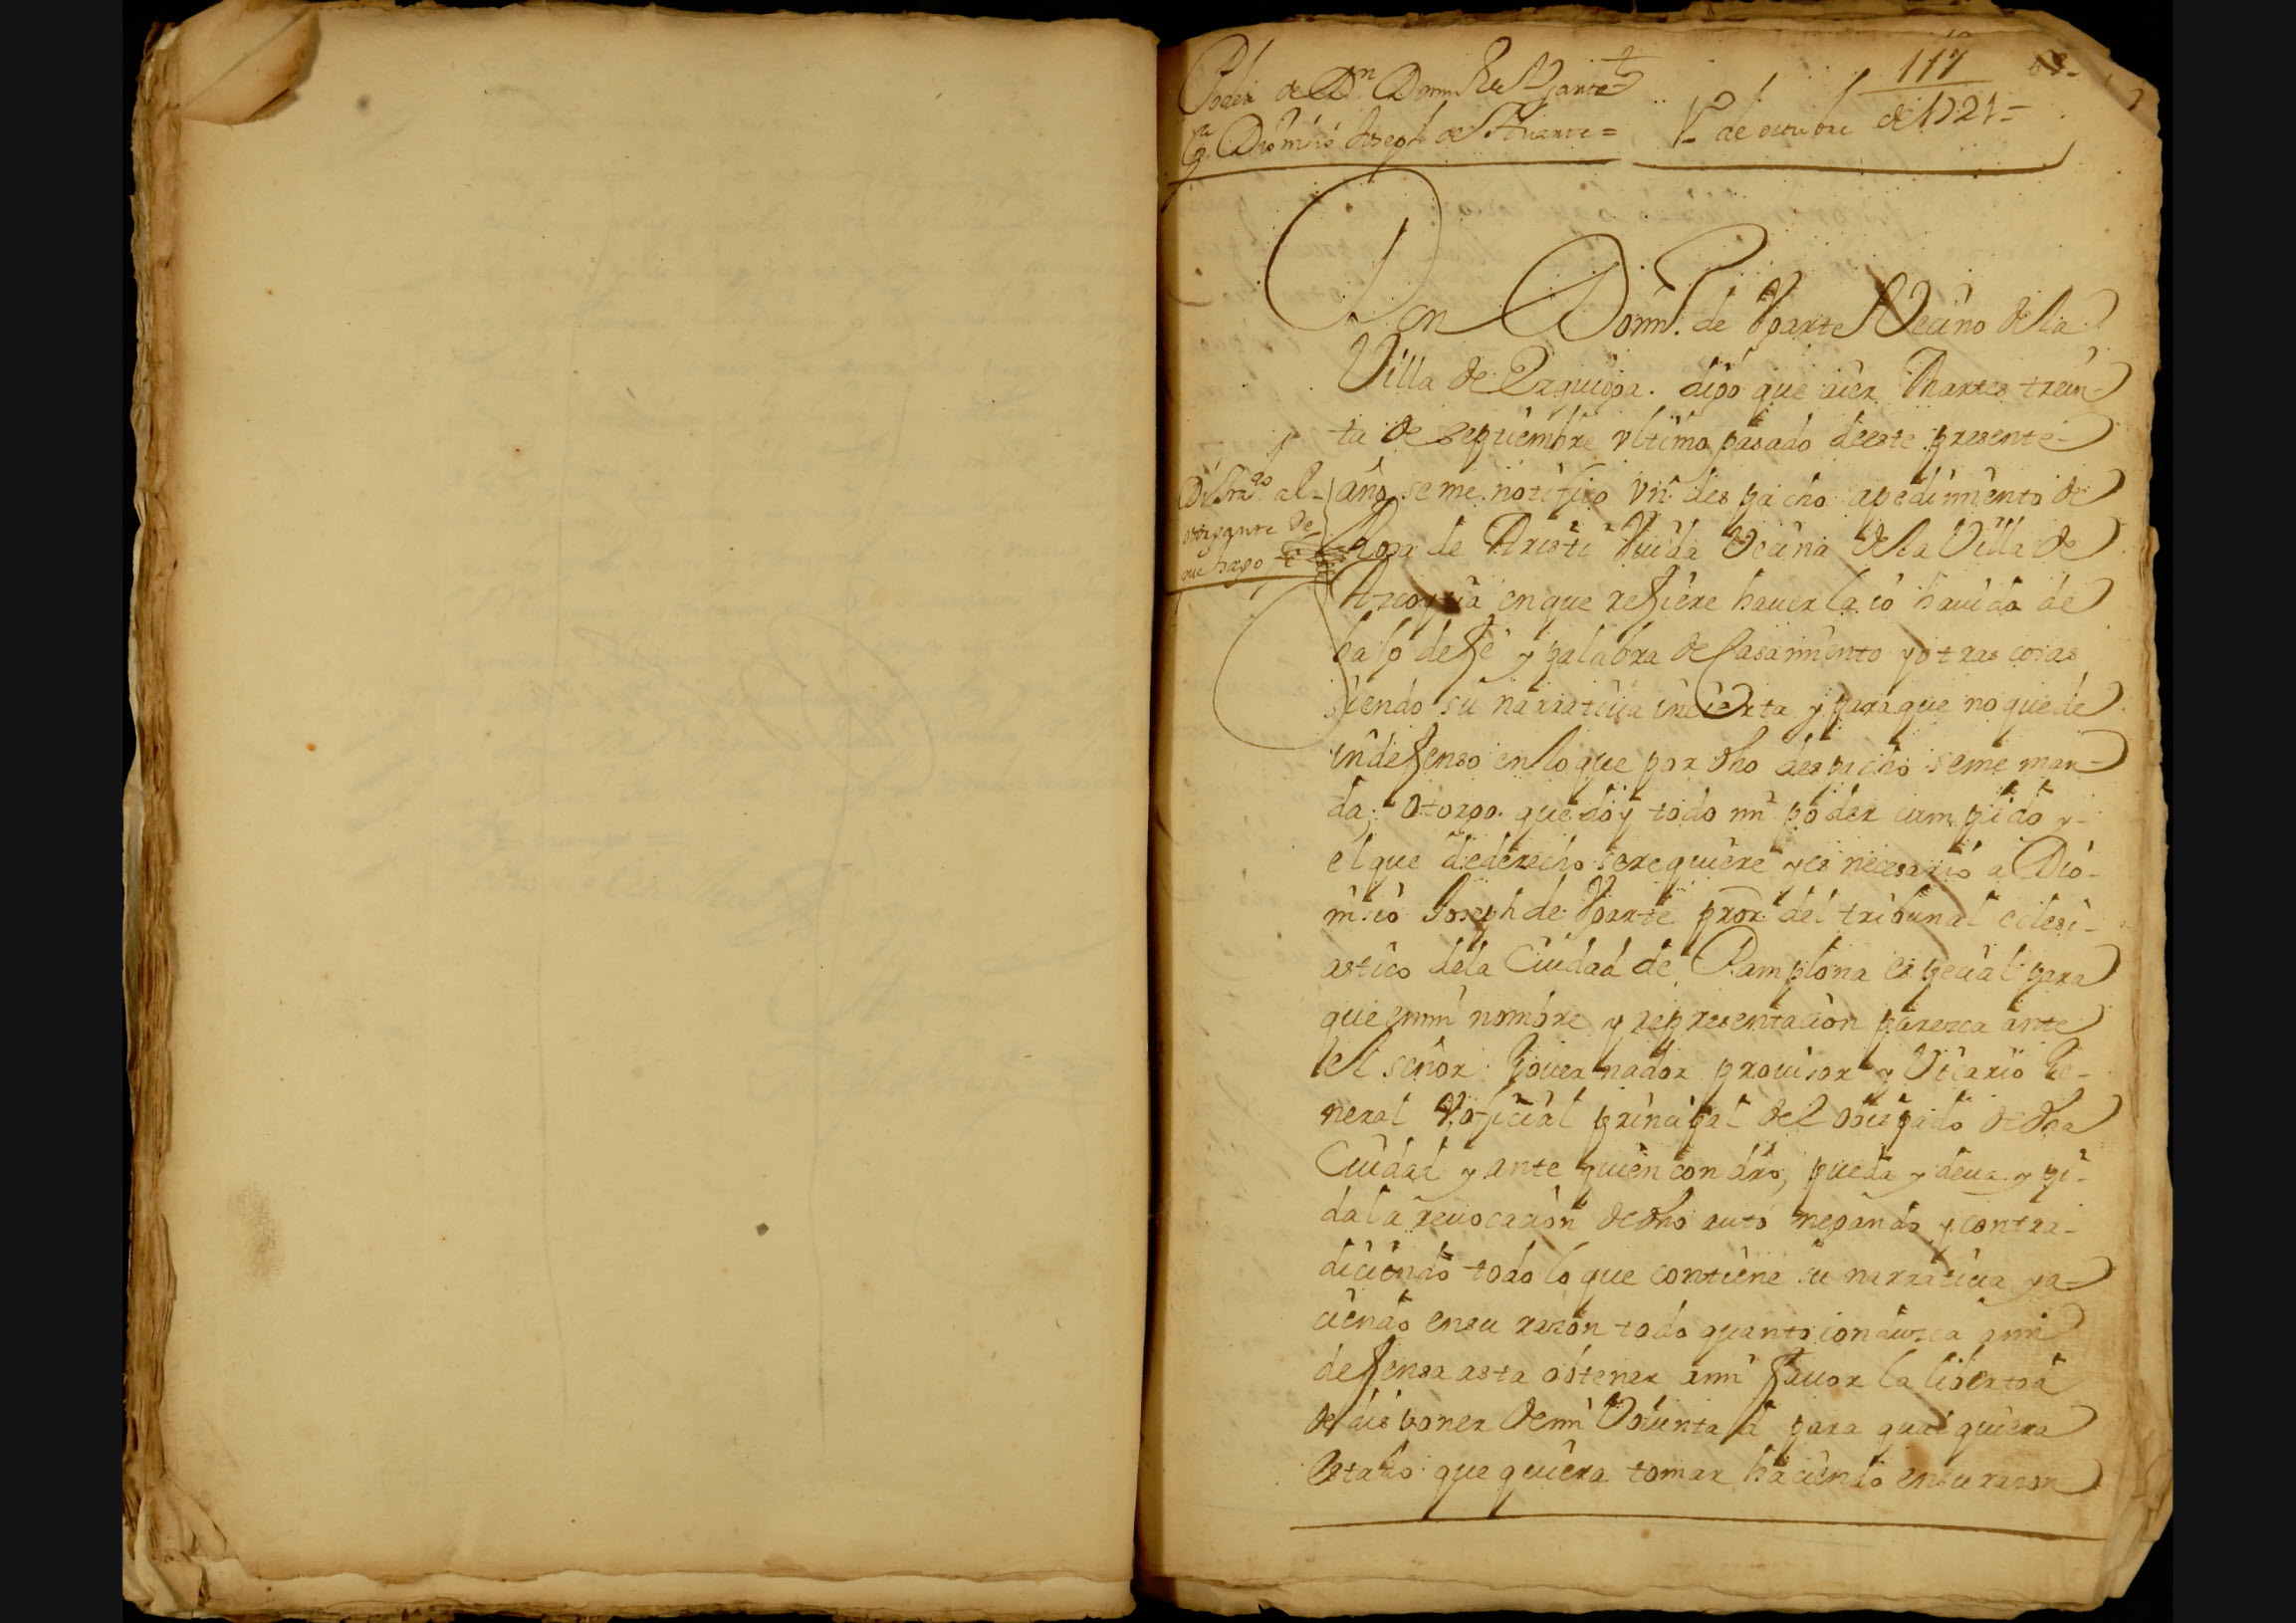 Poder de Dn. Domin. de Yarte
pa. Dionisio Joseph de Yriarte =
1o de octubre de 1721 =
117
Don Domin. de Yparte Vecino de la
Villa de Ezquioga. digo que aier Martes trein-
ta de septiembre vltimo pasado deeste presente
año se me notifico vn despacho apedimiento de
Rosa de Aristi Viuda Vecina de la Villa de
Azcoytia enque refiere hauerla io hauida de
bajo defe y palabra de Casamiento y otras cosas
siendo su narratiua incierta y paraque no quede
indefenso enlo que por dho despacho seme man-
da; Otorgo. que doy todo mi poder cumplido y-
el que dederecho serequiere y es necesario a Dio-
nisio Joseph de Yparte pror del tribunal eclesi-
astico dela Ciudad de Pamplona especial para
que enmi nombre y representacion paresca ante
el señor Gouernador prouisor y Vicario Ge-
neral Y oficial principal del obispado de dha
Ciudad y ante quien con dro, pueda y deua y pi-
dala reuocacion de dho auto negando y contra-
diciendo todo lo que contiene su narratiua ya-
ciendo ensu razon todo quanto conduzca ami
defensa asta obtener ami fauor la libertad
de disponer demi Voluntad para qualquiera
estado que quiera tomar haciendo ensu razon
Di trado. al
otorgante de
que hago fe